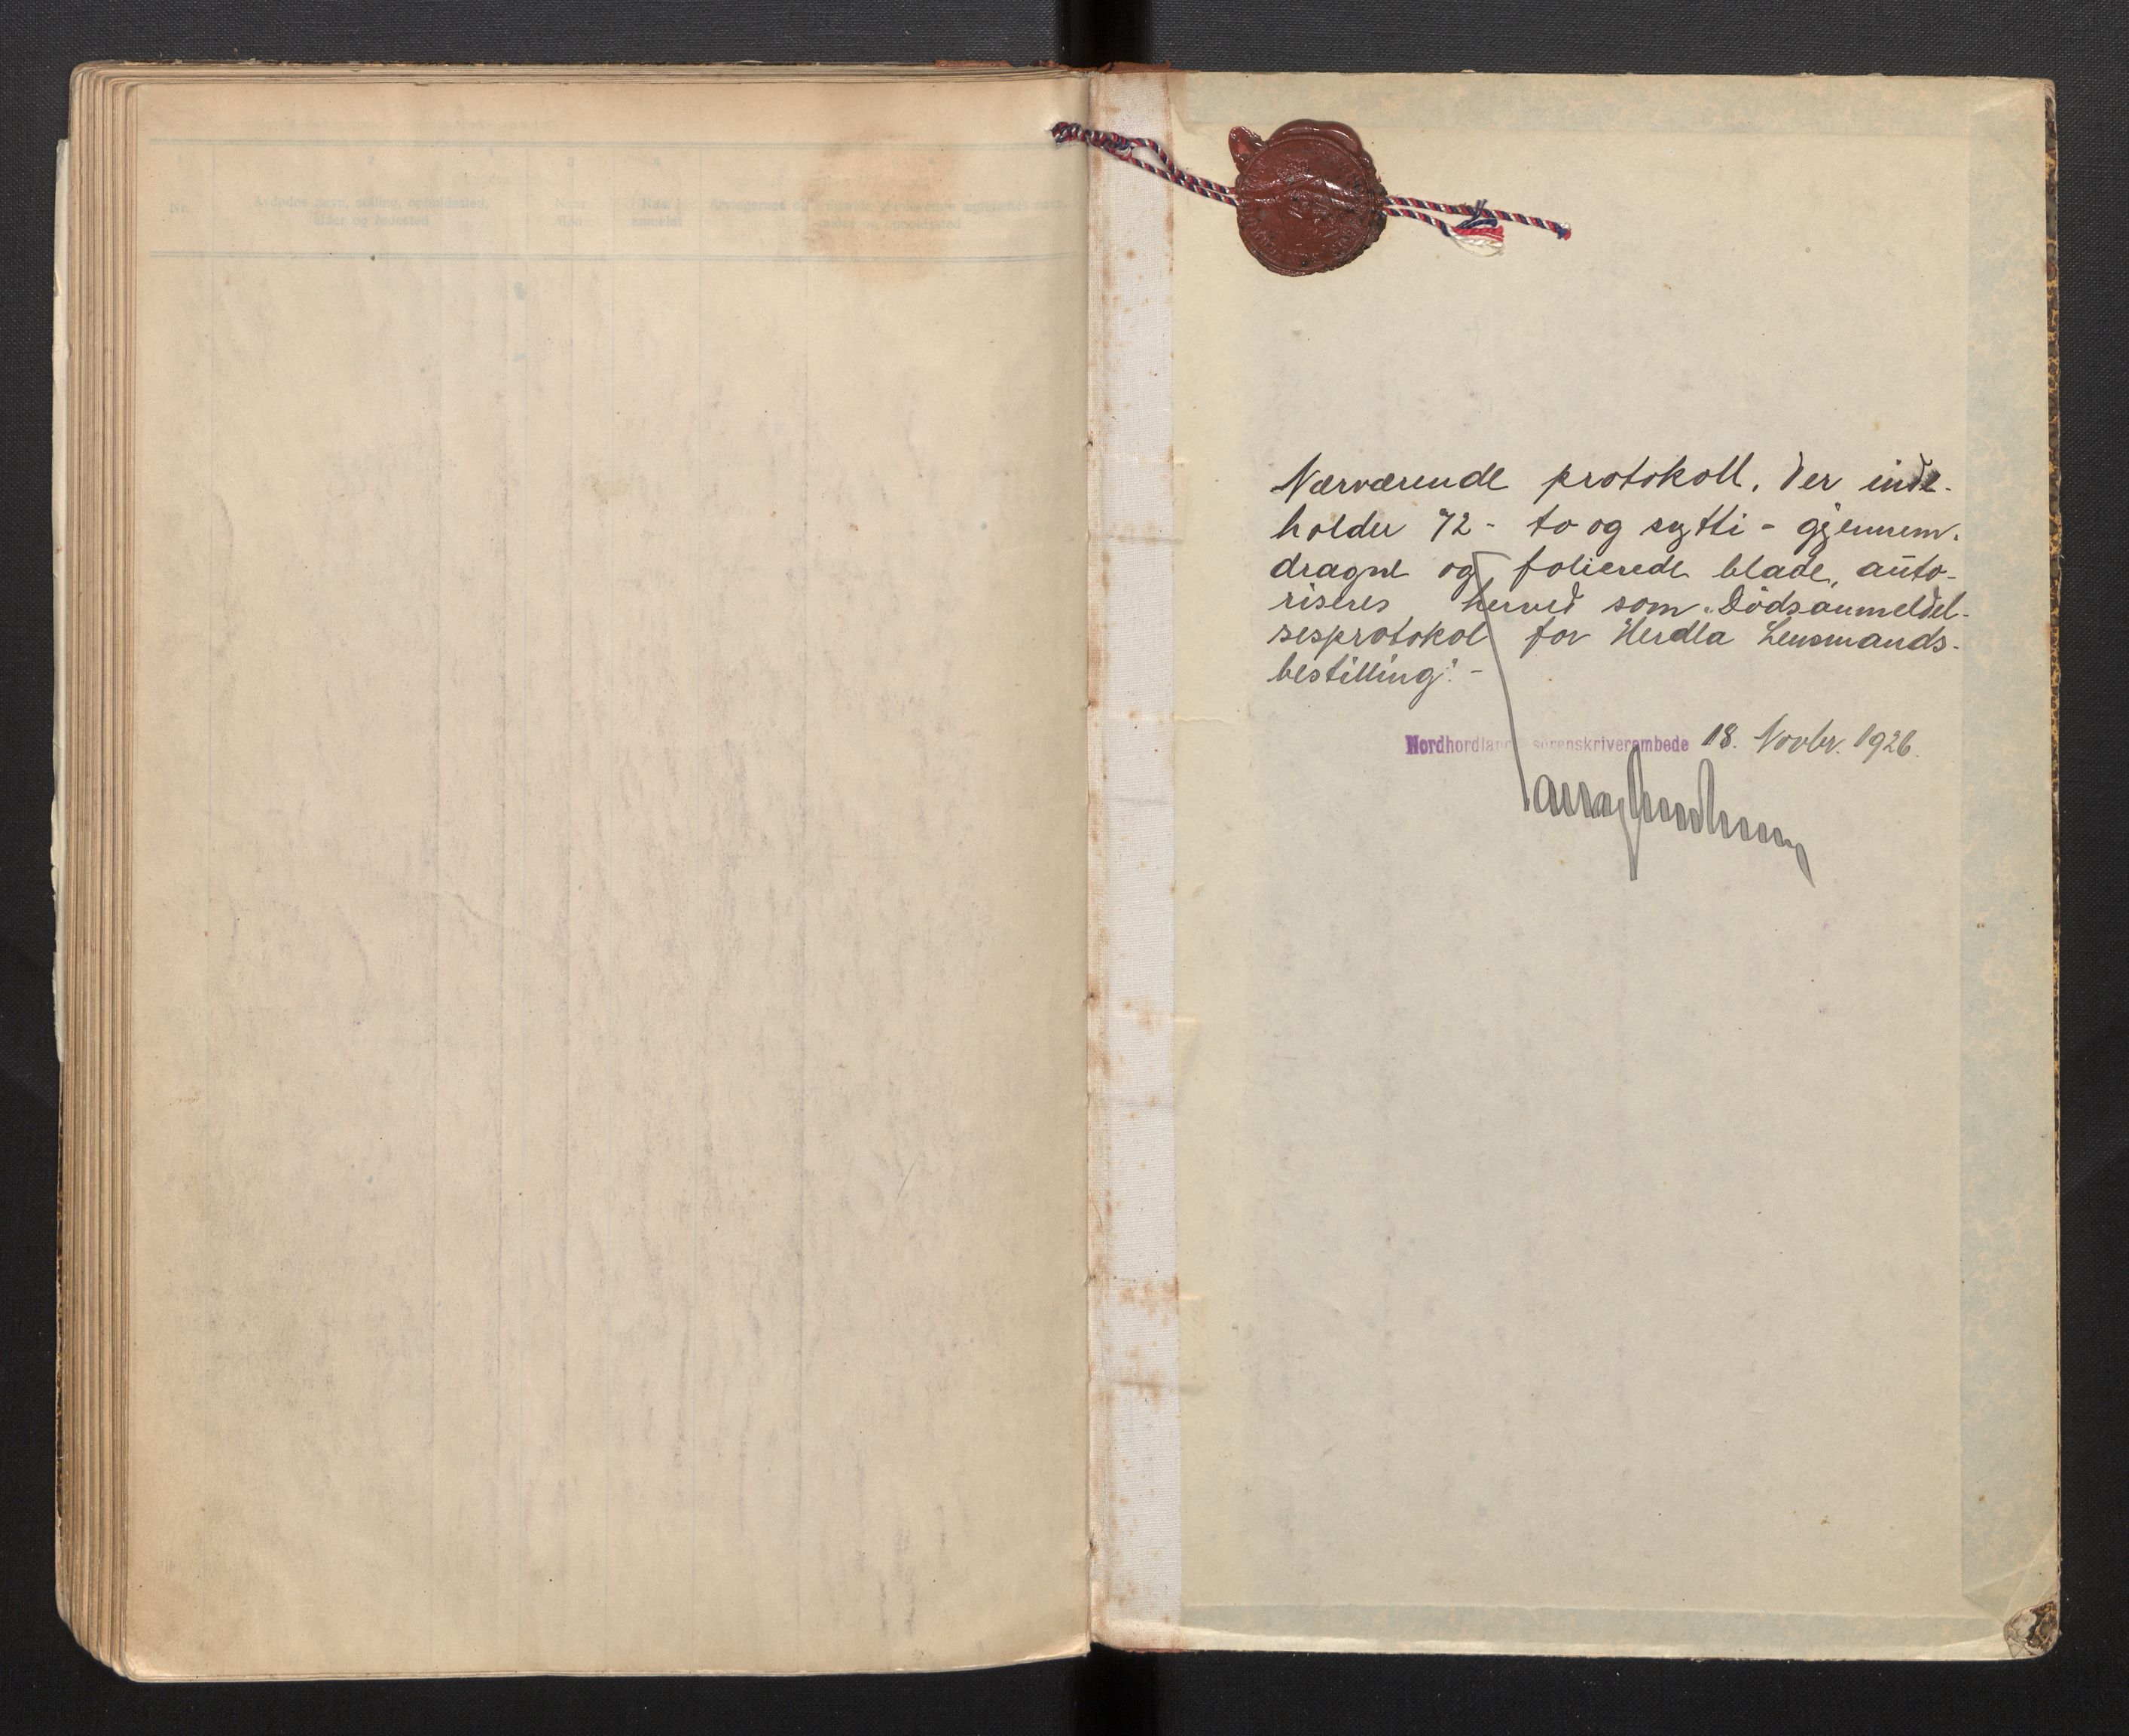 Nr.
Avdødes navn, stilling, opholdssted,
alder og fødested
Nærværende protokoll, der inde-
holder 72 - to og sytti - gjennem-
dragne og folierede blade, auto-
riseres herved som "Dödsanmeldel-
sesprotokol for Herdla Lensmands-
bestilling". -
Nordhordlands sorenskriverembede 18. Novbr. 1926.